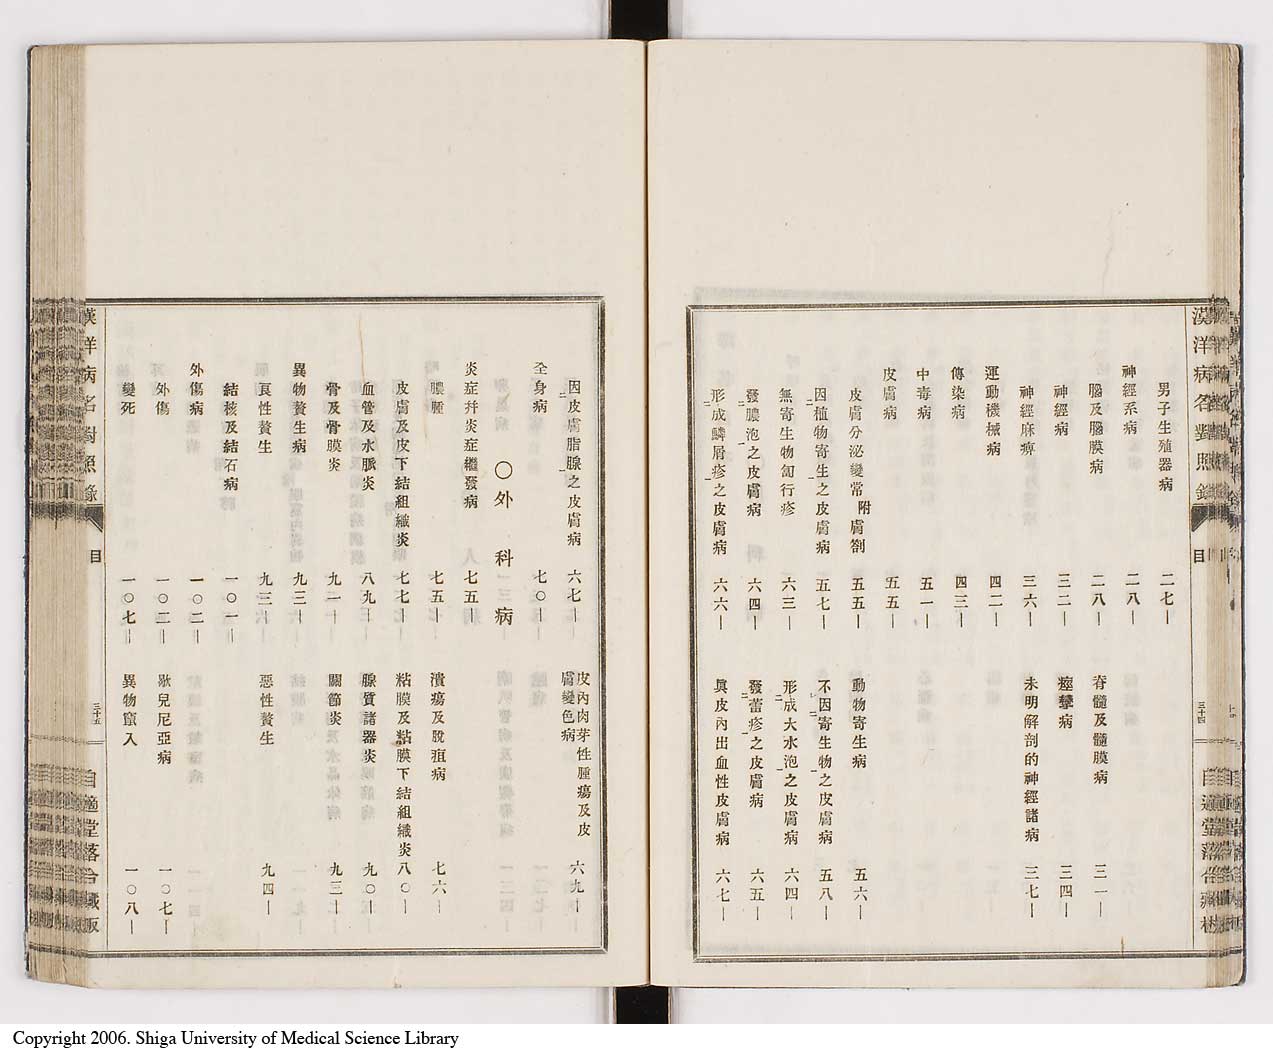 漢洋病名對照錄
目
三十四
男子生殖器病 二七—
神經系病 二八—
腦及腦膜病 二八—
脊髓及髓膜病 三一—
神經病 三二—
痙攣病 三四—
神經麻痺 三六—
未明解剖的神經諸病 三七—
運動機械病 四二—
傳染病 四三—
中毒病 五一—
皮膚病 五五—
皮膚分泌變常 附膚劄 五五—
動物寄生病 五六—
因植物寄生之皮膚病 五七—
不因寄生物之皮膚病 五八—
無寄生物匐行疹 六三—
形成大水泡之皮膚病 六四—
發膿泡之皮膚病 六四—
發蕾疹之皮膚病 六五—
形成鱗屑疹之皮膚病 六六—
眞皮內出血性皮膚病 六七—
因皮膚脂腺之皮膚病 六七—
皮內肉芽性腫瘍及皮膚變色病 六九—
全身病 七〇—
〇外科病
炎症幷炎症繼發病 七五—
膿腫 七五—
潰瘍及脫疽病 七六—
皮膚及皮下結組織炎 七七—
粘膜及粘膜下結組織炎 八〇—
血管及水脈炎 八九—
腺質諸器炎 九〇—
骨及骨膜炎 九一—
關節炎 九三—
異物贅生病 九三—
良性贅生 九三—
惡性贅生 九四—
結核及結石病 一〇一—
外傷病 一〇二—
外傷 一〇二—
歇兒尼亞病 一〇七—
變死 一〇七—
異物竄入 一〇八—
漢洋病名對照錄
目
三十五
自適堂落合藏版
Copyright 2006. Shiga University of Medical Science Library